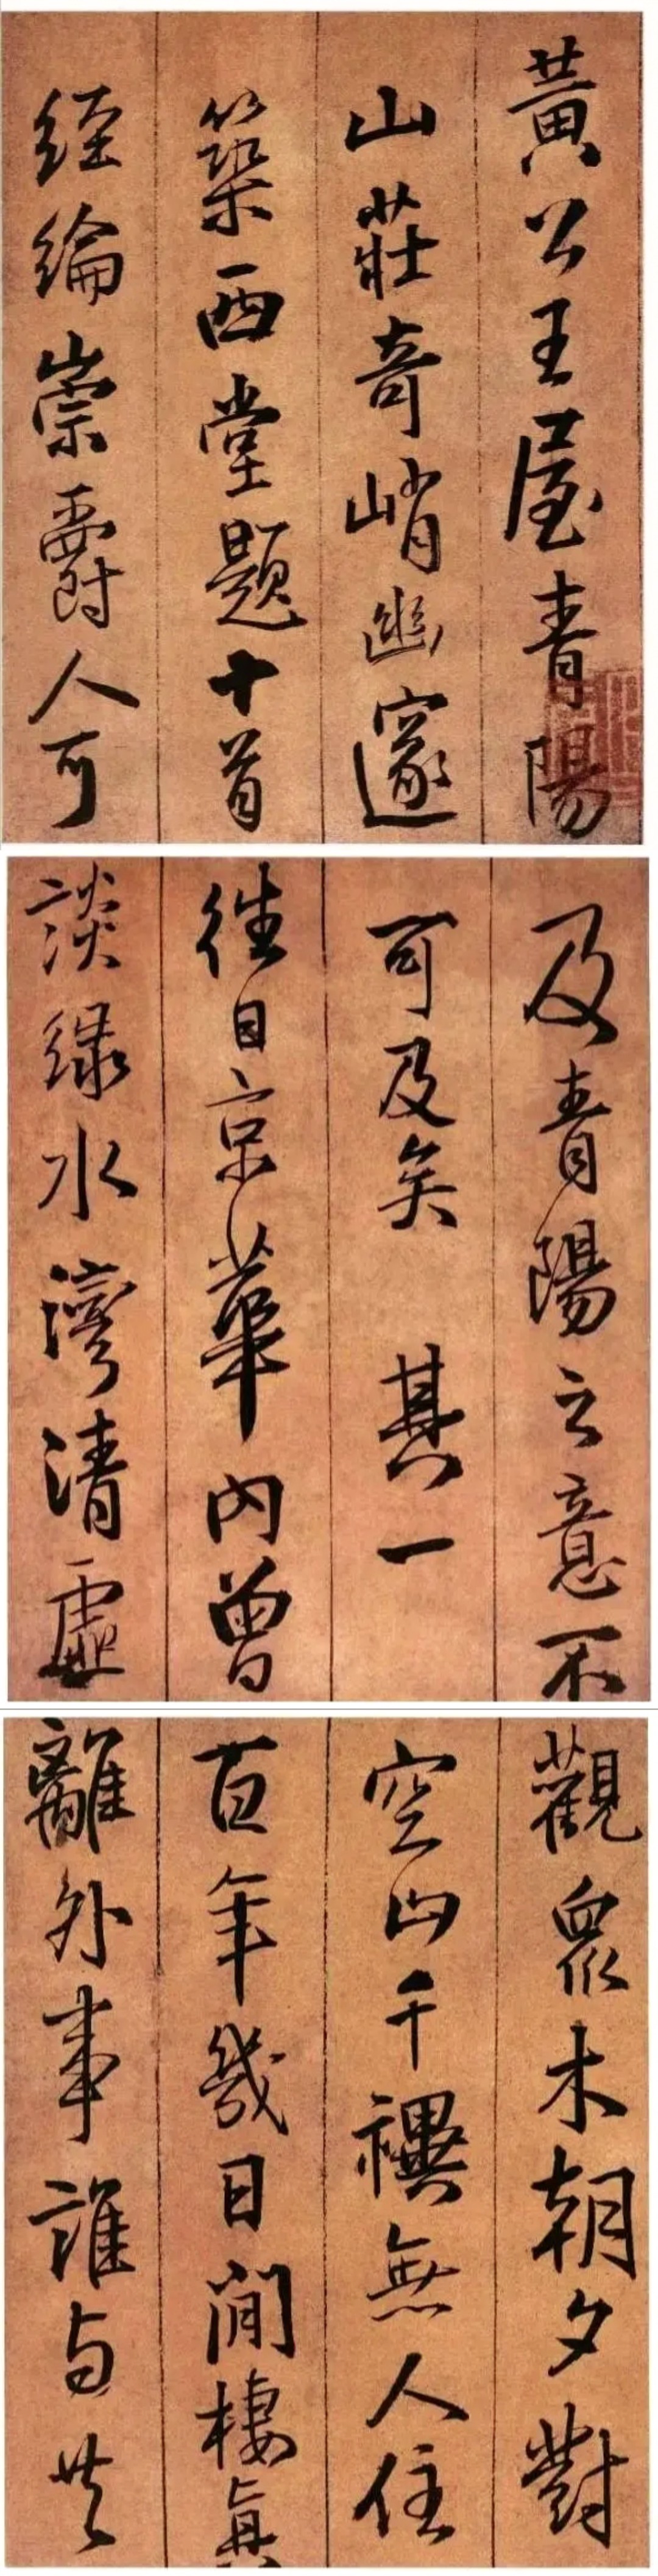 黃公王屋青陽
山莊奇峭幽邃
築西堂題十首
經綸崇爵人可
及青陽之意不
可及矣 其一
往日京華內曾
談綠水灣清虛
觀眾木朝夕對
空山千禩無人住
百年幾日閒棲真
離外事誰与共